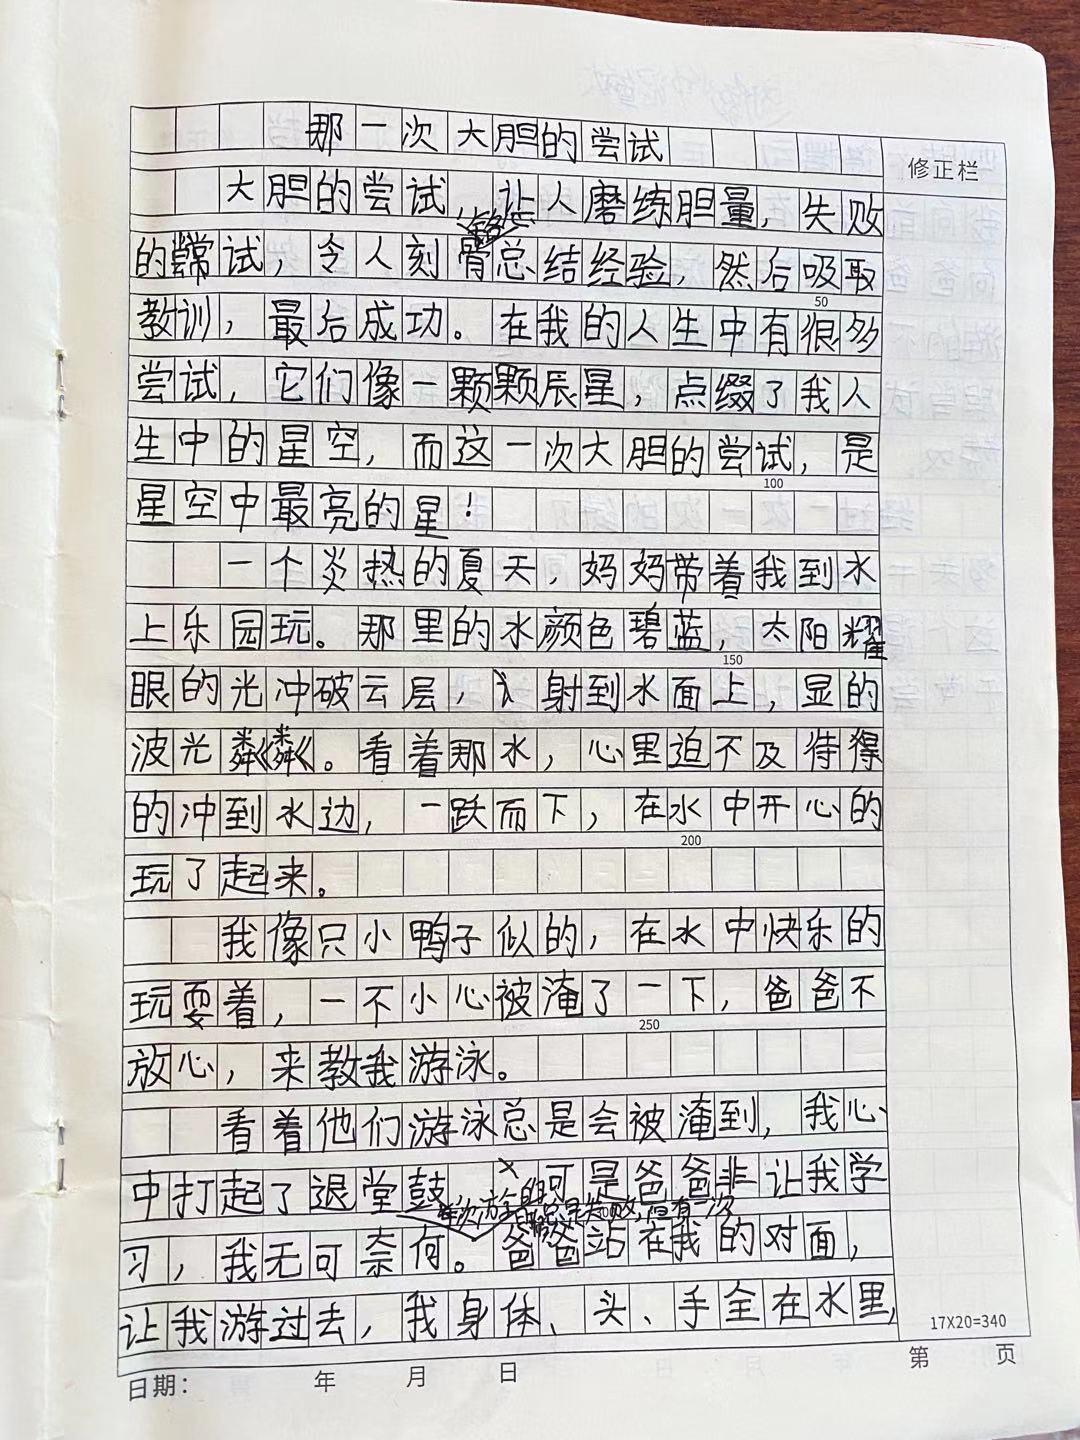 那一次大胆的尝试
修正栏
大胆的尝试 让人磨练胆量，失败
铭
的尝试，令人刻骨总结经验，然后吸取
50
教训，最后成功。在我的人生中有很多
尝试，它们像一颗颗辰星，点缀了我人
生中的星空，而这一次大胆的尝试，是
100
星空中最亮的星！
一个炎热的夏天，妈妈带着我到水
上乐园玩。那里的水颜色碧蓝，太阳耀
150
眼的光冲破云层，射到水面上，显的
波光粼粼。看着那水，心里迫不及待得
的冲到水边，一跃而下，在水中开心的
200
玩了起来。
我像只小鸭子似的，在水中快乐的
玩耍着，一不小心被淹了一下，爸爸不
250
放心，来教我游泳。
看着他们游泳总是会被淹到，我心
中打起了退堂鼓 可是爸爸非让我学
总是失败，但有一次
习，我无可奈何。爸爸站在我的对面，
让我游过去，我身体、头、手全在水里，
17X20=340
日期： 年 月 日
第 页